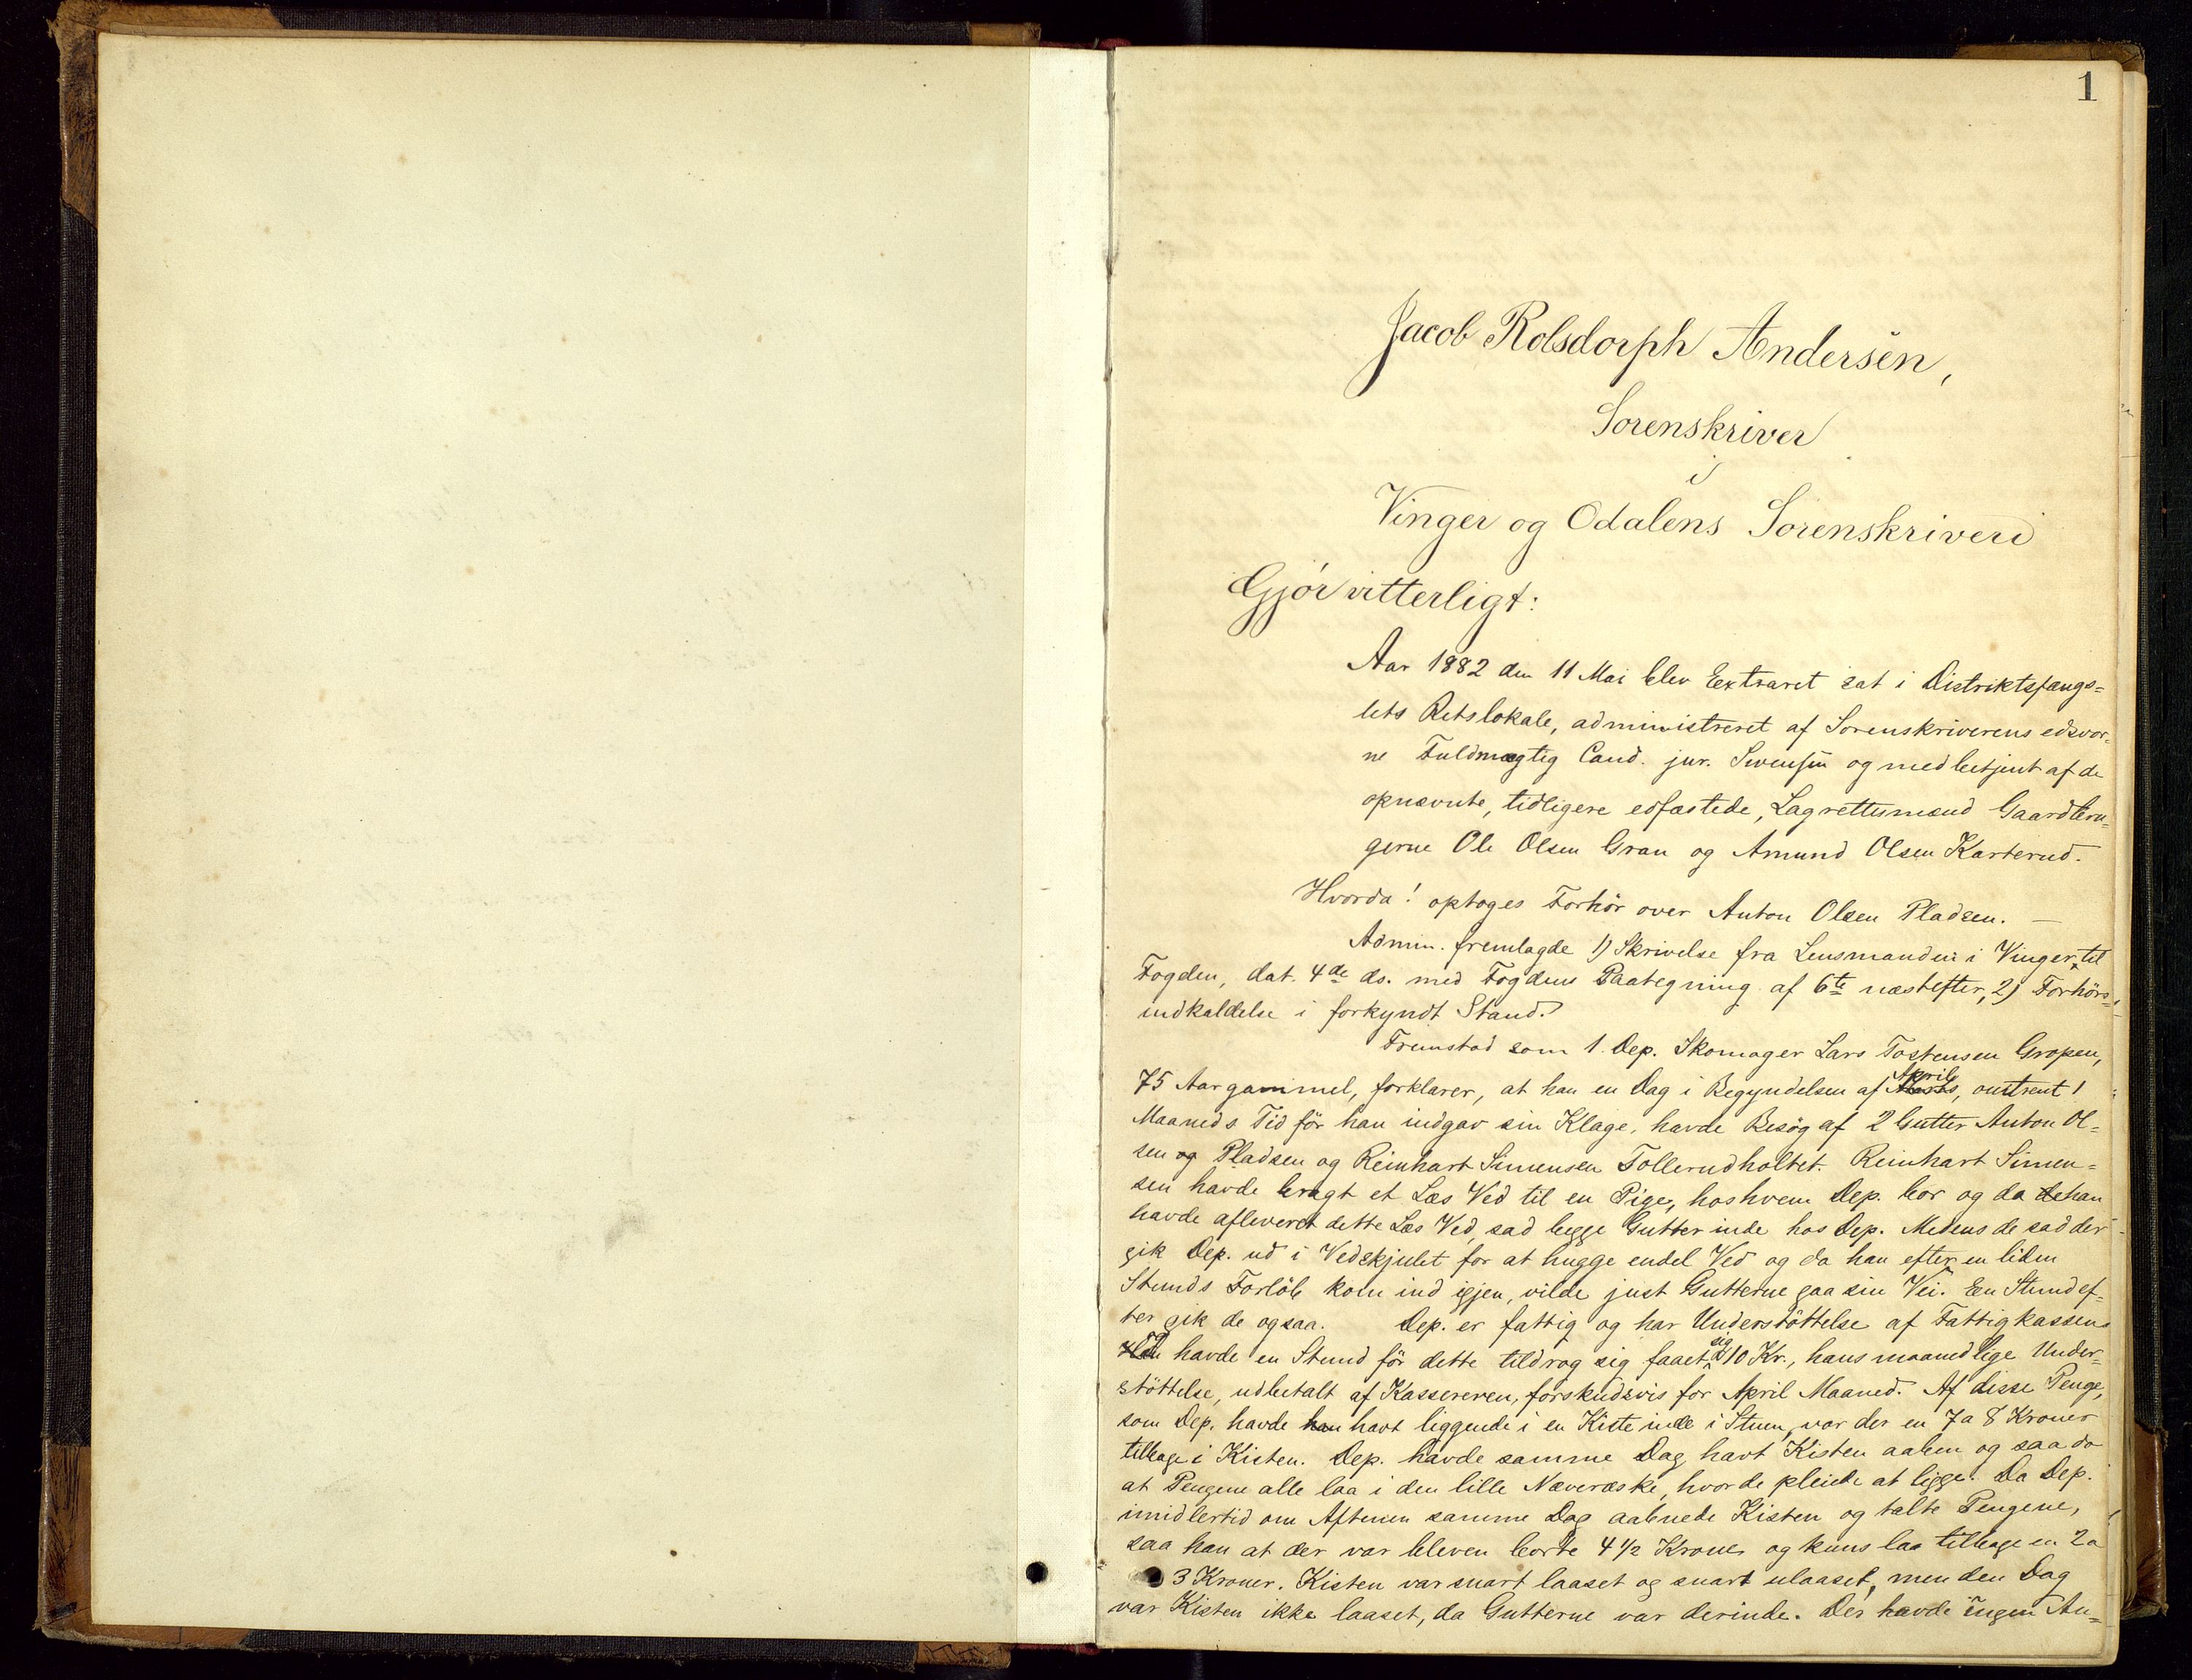 1
Jacob Rolsdorph Andersen,
Sorenskriver
i
Vinger og Odalens Sorenskriveri
Gjör vitterligt:
Aar 1882 den 11 Mai blev Extraret sat i Distriktsfængs=
lets Retslokale, administreret af Sorenskriverens edsvor=
ne Fuldmægtig Cand. jur. Svensen og medbetjent af de
opnævnte, tidligere edfæstede, Lagrettesmænd Gaardbru=
gerne Ole Olsen Gran og Amund Olsen Karterud.
Hvorda! optoges Forhör over Anton Olsen Pladsen. —
Admin. fremlagde 1) Skrivelse fra Lensmanden i Vinger til
Fogden, dat. 4de ds. med Fogdens Paategning af 6te næstefter, 2) Forhörs=
indkaldelse i forkyndt Stand.
Fremstod som 1. Dep. Skomager Lars Tostensen Gropen,
75 Aar gammel, forklarer, at han en Dag i Begyndelsen af April, omtrent 1
Maaneds Tid för han indgav sin Klage, havde Besög af 2 Gutter Anton Ol=
sen og Pladsen og Reinhart Simensen Tollerudholtet. Reinhart Simen=
sen havde bragt et Læs Ved til en Pige, hos hvem Dep. bor og da de han
havde afleveret dette Læs Ved, sad begge Gutter inde hos Dep. Medens de sad der
gik Dep. ud i Vedskjulet for at hugge endel Ved og da han efter en liden
Stunds Forlöb kom ind igjen, vilde just Gutterne gaa sin Vei. En Stund ef=
ter gik de ogsaa. Dep. er fattig og har Understöttelse af Fattigkassen
havde en Stund för dette tildrog sig faaet sig 10 Kr., hans maanedlige Under=
stöttelse, udbetalt af Kassereren, forskudsvis for April Maaned. Af disse Penge,
som Dep. havde han havt liggende i en Kiste inde i Stuen, var der en 7 a 8 Kroner
tilbage i Kisten. Dep. havde samme Dag havt Kisten aaben og saa da
at Pengene alle laa i den lille Næveræske, hvor de pleiede at ligge. Da Dep.
imidlertid om Aftenen samme Dag aabnede Kisten og talte Pengene,
saa han at der var bleven borte 4 1/2 Krone og kuns laa tilbage en 2 a
3 Kroner. Kisten var snart laaset og snart ulaaset, men den Dag
var Kisten ikke laaset, da Gutterne var derinde. Der havde ingen An=